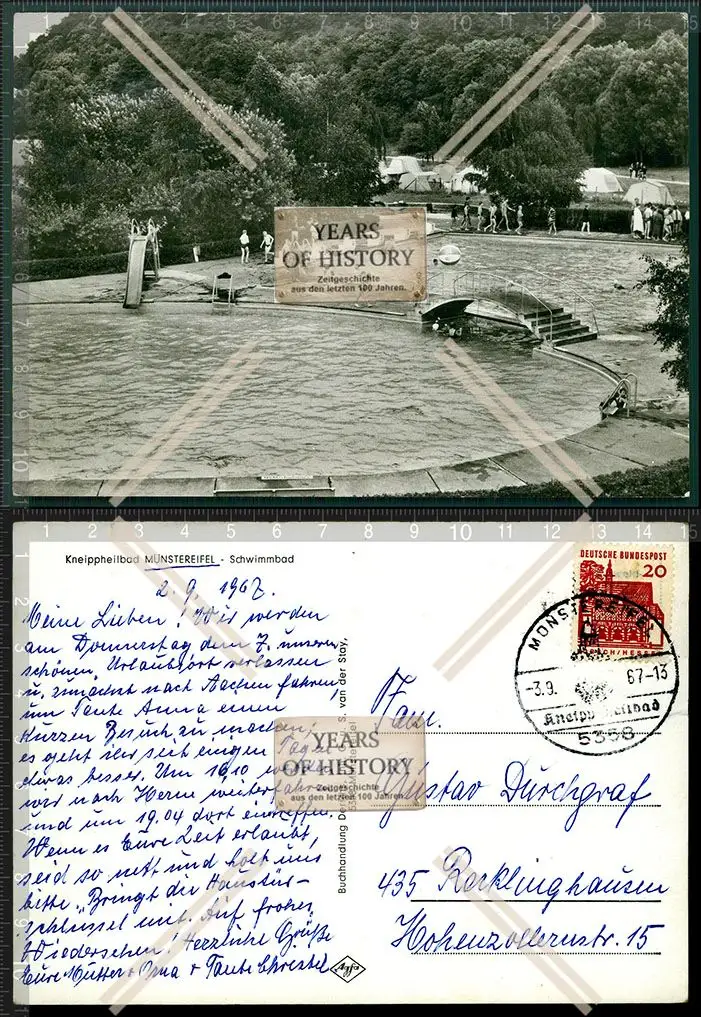 YEARS
OF HISTORY
Zeitgeschichte
aus den letzten 100 Jahren
Kneippheilbad MÜNSTEREIFEL - Schwimmbad
2. 9. 1967.
Meine Lieben! Wir werden
am Donnerstag dem 7. unseren
schönen Urlaubsort verlassen
u. zunächst nach Aachen fahren,
um Tante Anna einen
kurzen Besuch zu machen;
es geht ihr seit einigen Tagen
etwas besser. Um 16,10 werden
wir nach Herne weiterfahren
und um 19,04 dort eintreffen.
Wenn es Eure Zeit erlaubt,
seid so nett und holt uns
bitte. Bringt die Haustür-
schlüssel mit. Auf frohes
Wiedersehen! Herzliche Grüße
Eure Mutter + Oma + Tante Christel
Buchhandlung S. van der Stay,
Agfa
DEUTSCHE BUNDESPOST
20
LORSCH/HESSEN
MÜNSTEREIFEL
-3.9. 67-13
Kneippheilbad
5358
Fam.
Gustav Durchgraf
YEARS
OF HISTORY
Zeitgeschichte
aus den letzten 100 Jahren
435 Recklinghausen
Hohenzollernstr. 15